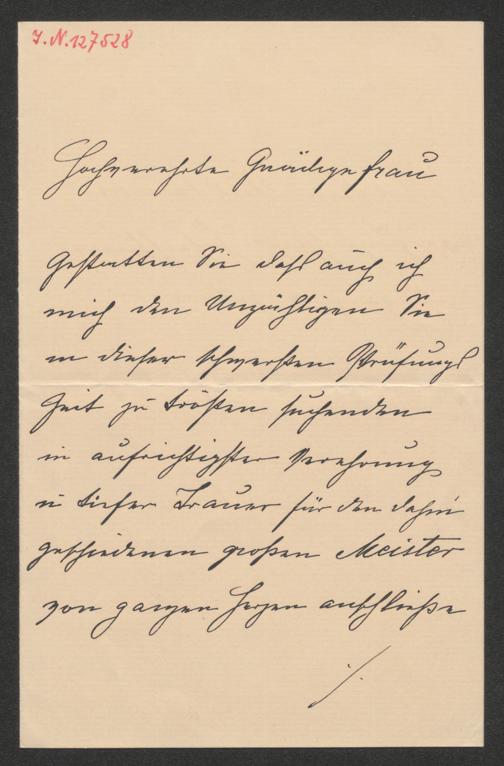 J. N. 127528
Hochverehrte Gnädige Frau
Gestatten Sie daß auch ich
mich den Unzähligen Sie
in dieser schwersten Prüfungs
Zeit zu trösten suchenden
in aufrichtigster Verehrung
u tiefer Trauer für den dahin
geschiedenen großen Meister
von ganzen Herzen anschließe
./.